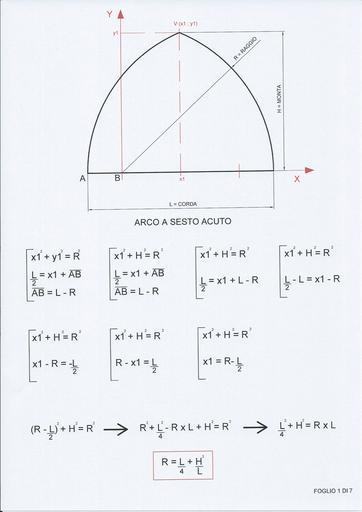 Y
V (x1 ; y1)
y1
R = RAGGIO
H = MONTA
A
B
x1
X
L = CORDA
ARCO A SESTO ACUTO
x1² + y1² = R²
L/2 = x1 + A̅B̅
A̅B̅ = L - R
x1² + H² = R²
L/2 = x1 + A̅B̅
A̅B̅ = L - R
x1² + H² = R²
L/2 = x1 + L - R
x1² + H² = R²
L/2 - L = x1 - R
x1² + H² = R²
x1 - R = -L/2
x1² + H² = R²
R - x1 = L/2
x1² + H² = R²
x1 = R- L/2
(R - L/2)² + H² = R² → R² + L²/4 - R x L + H² = R² → L²/4 + H² = R x L
R = L/4 + H²/L
FOGLIO 1 DI 7